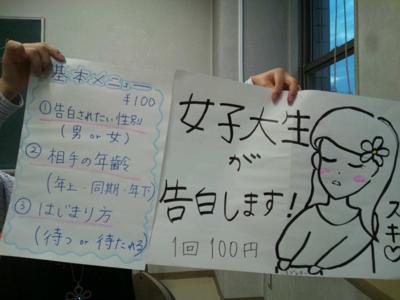 基本メニュー
¥100
①告白されたい性別
(男 or 女)
②相手の年齢
(年上・同期・年下)
③はじまり方
(待つ or 待たれる)
女子大生
が
告白します!
1回100円
スキ♡